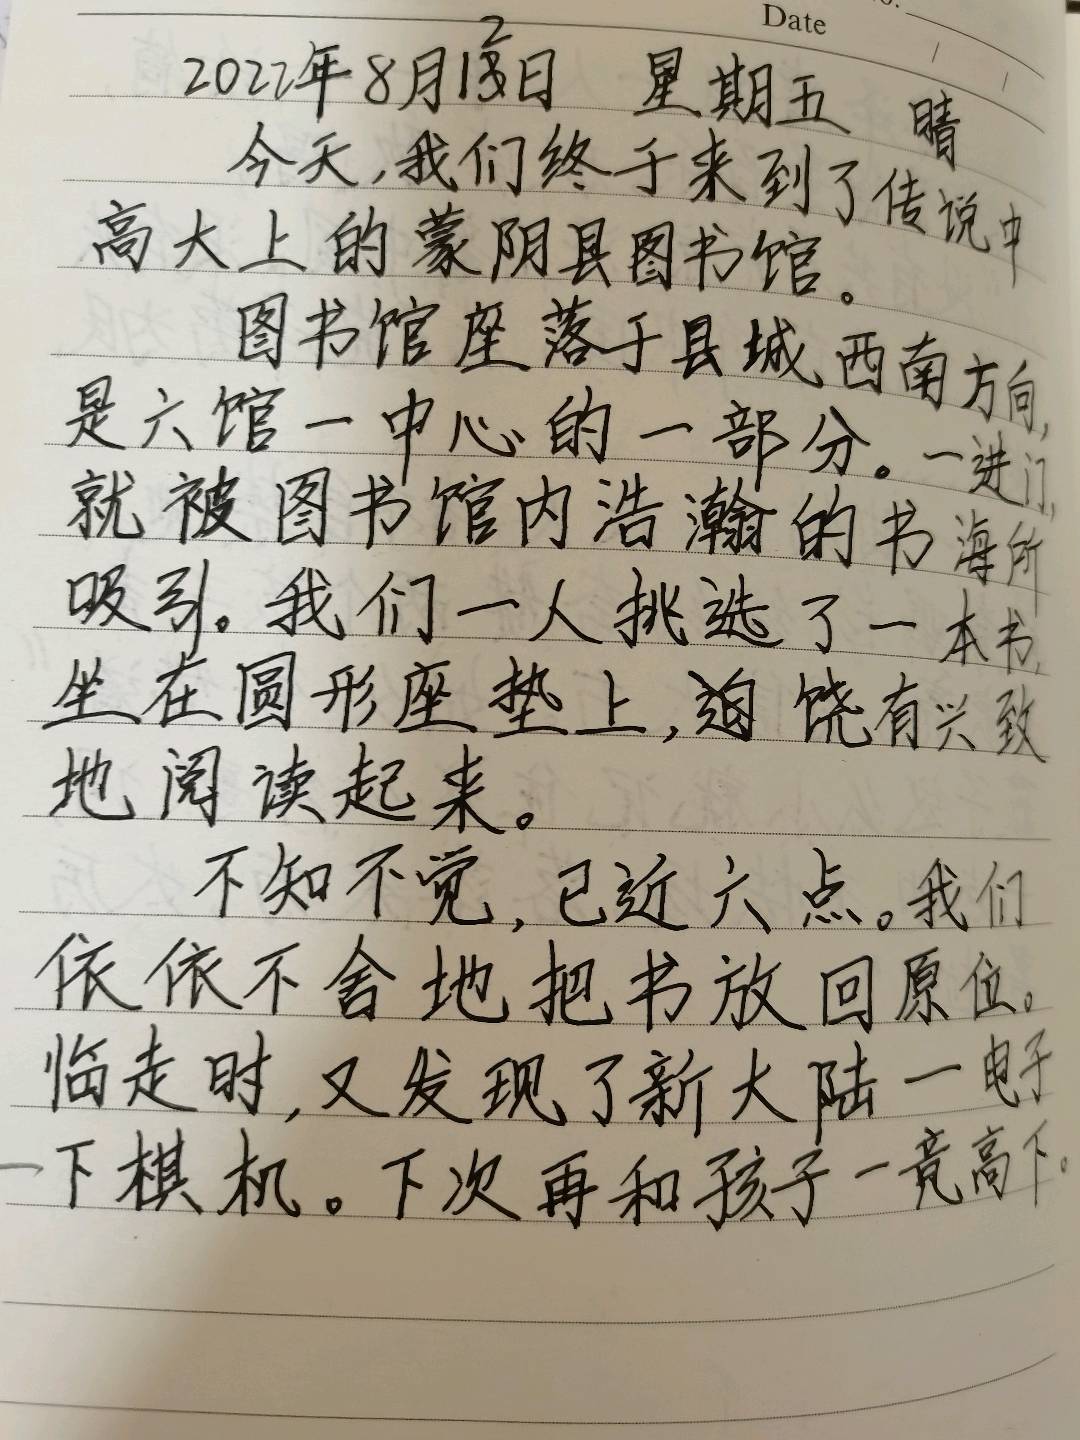 Date
2022年8月12日 星期五 晴
今天,我们终于来到了传说中
高大上的蒙阴县图书馆。
图书馆座落于县城西南方向,
是六馆一中心的一部分。一进门,
就被图书馆内浩瀚的书海所
吸引。我们一人挑选了一本书,
坐在圆形座垫上,饶有兴致
地阅读起来。
不知不觉,已近六点。我们
依依不舍地把书放回原位。
临走时,又发现了新大陆一电子
下棋机。下次再和孩子一竞高下。